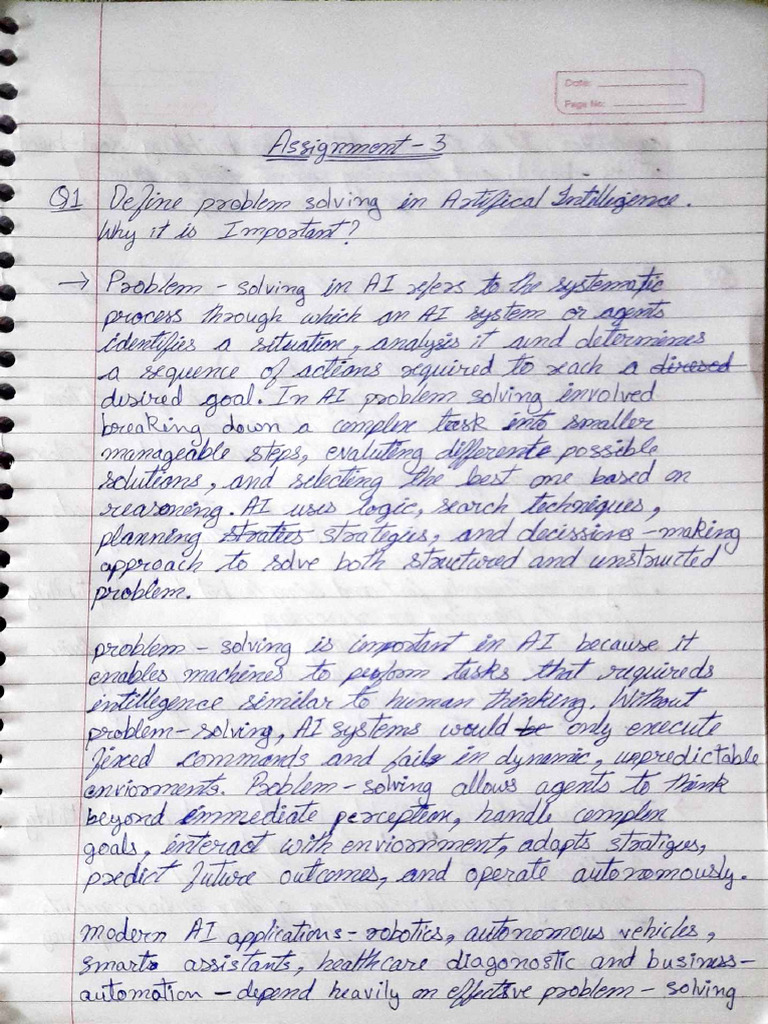 Date:
Page No:
Assignment - 3
Q1 Define problem solving in Artifical Intelligence.
Why it is Important?
→ Problem - solving in AI refers to the systematic
process through which an AI system or agents
identifies a situation, analysis it and determines
a sequence of actions required to reach a diresed
desired goal. In AI problem solving involved
breaking down a complex task into smaller
manageable steps, evaluting differente possible
solutions, and selecting the best one based on
reasoning. AI uses logic, search techniques,
planning straties strategies, and decissions - making
approach to solve both structured and unstructed
problem.
problem - solving is important in AI because it
enables machines to perform tasks that requireds
intillegence similar to human thinking. Without
problem - solving, AI systems would be only execute
fixed commands and fails in dynamic, unpredictable
enviorments. Problem - solving allows agents to think
beyond immediate perception, handle complex
goals, interact with enviornment, adapts stratigies,
predict future outcomes, and operate autonomously.
modern AI applications - robotics, autonomous vehicles,
smarts assistants, healthcare diagonostic and business -
automation - depend heavily on effective problem - solving